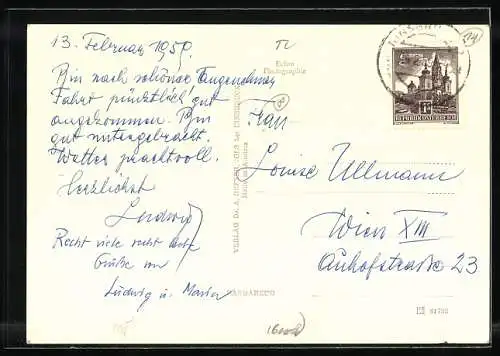 13. Februar 1959.
Bin nach schöner angenehmer
Fahrt pünktlich gut
angekommen. Bin
gut untergebracht.
Wetter prachtvoll.
Herzlichst
Ludwig
Recht viele
Grüße von
Ludwig u. Maria
Echte
Photographie
Frau
Louise Ullmann
Wien XIII
Auhofstrasse 23
REPUBLIK ÖSTERREICH
VERLAG DR. A.
Made in Austria
51782